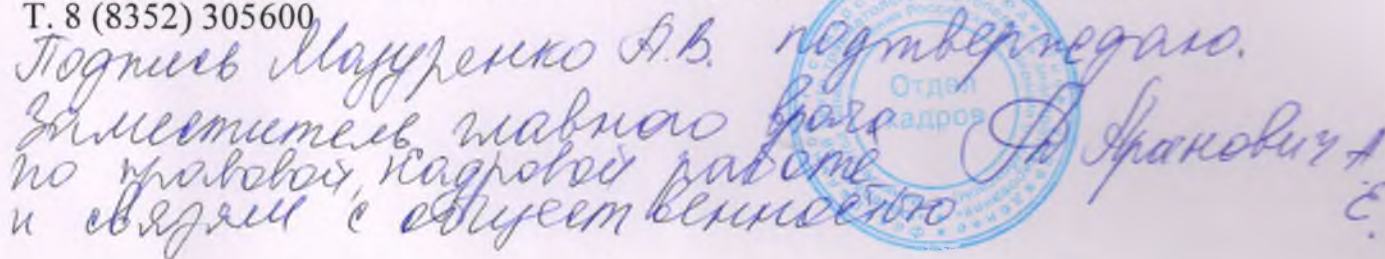 Т. 8 (8352) 305600
Подпись Мазуренко А.В. подтверждаю.
Заместитель главного врача
по правовой, кадровой работе
и связям с общественностью
Аранович А.
Е.
Отдел
кадров